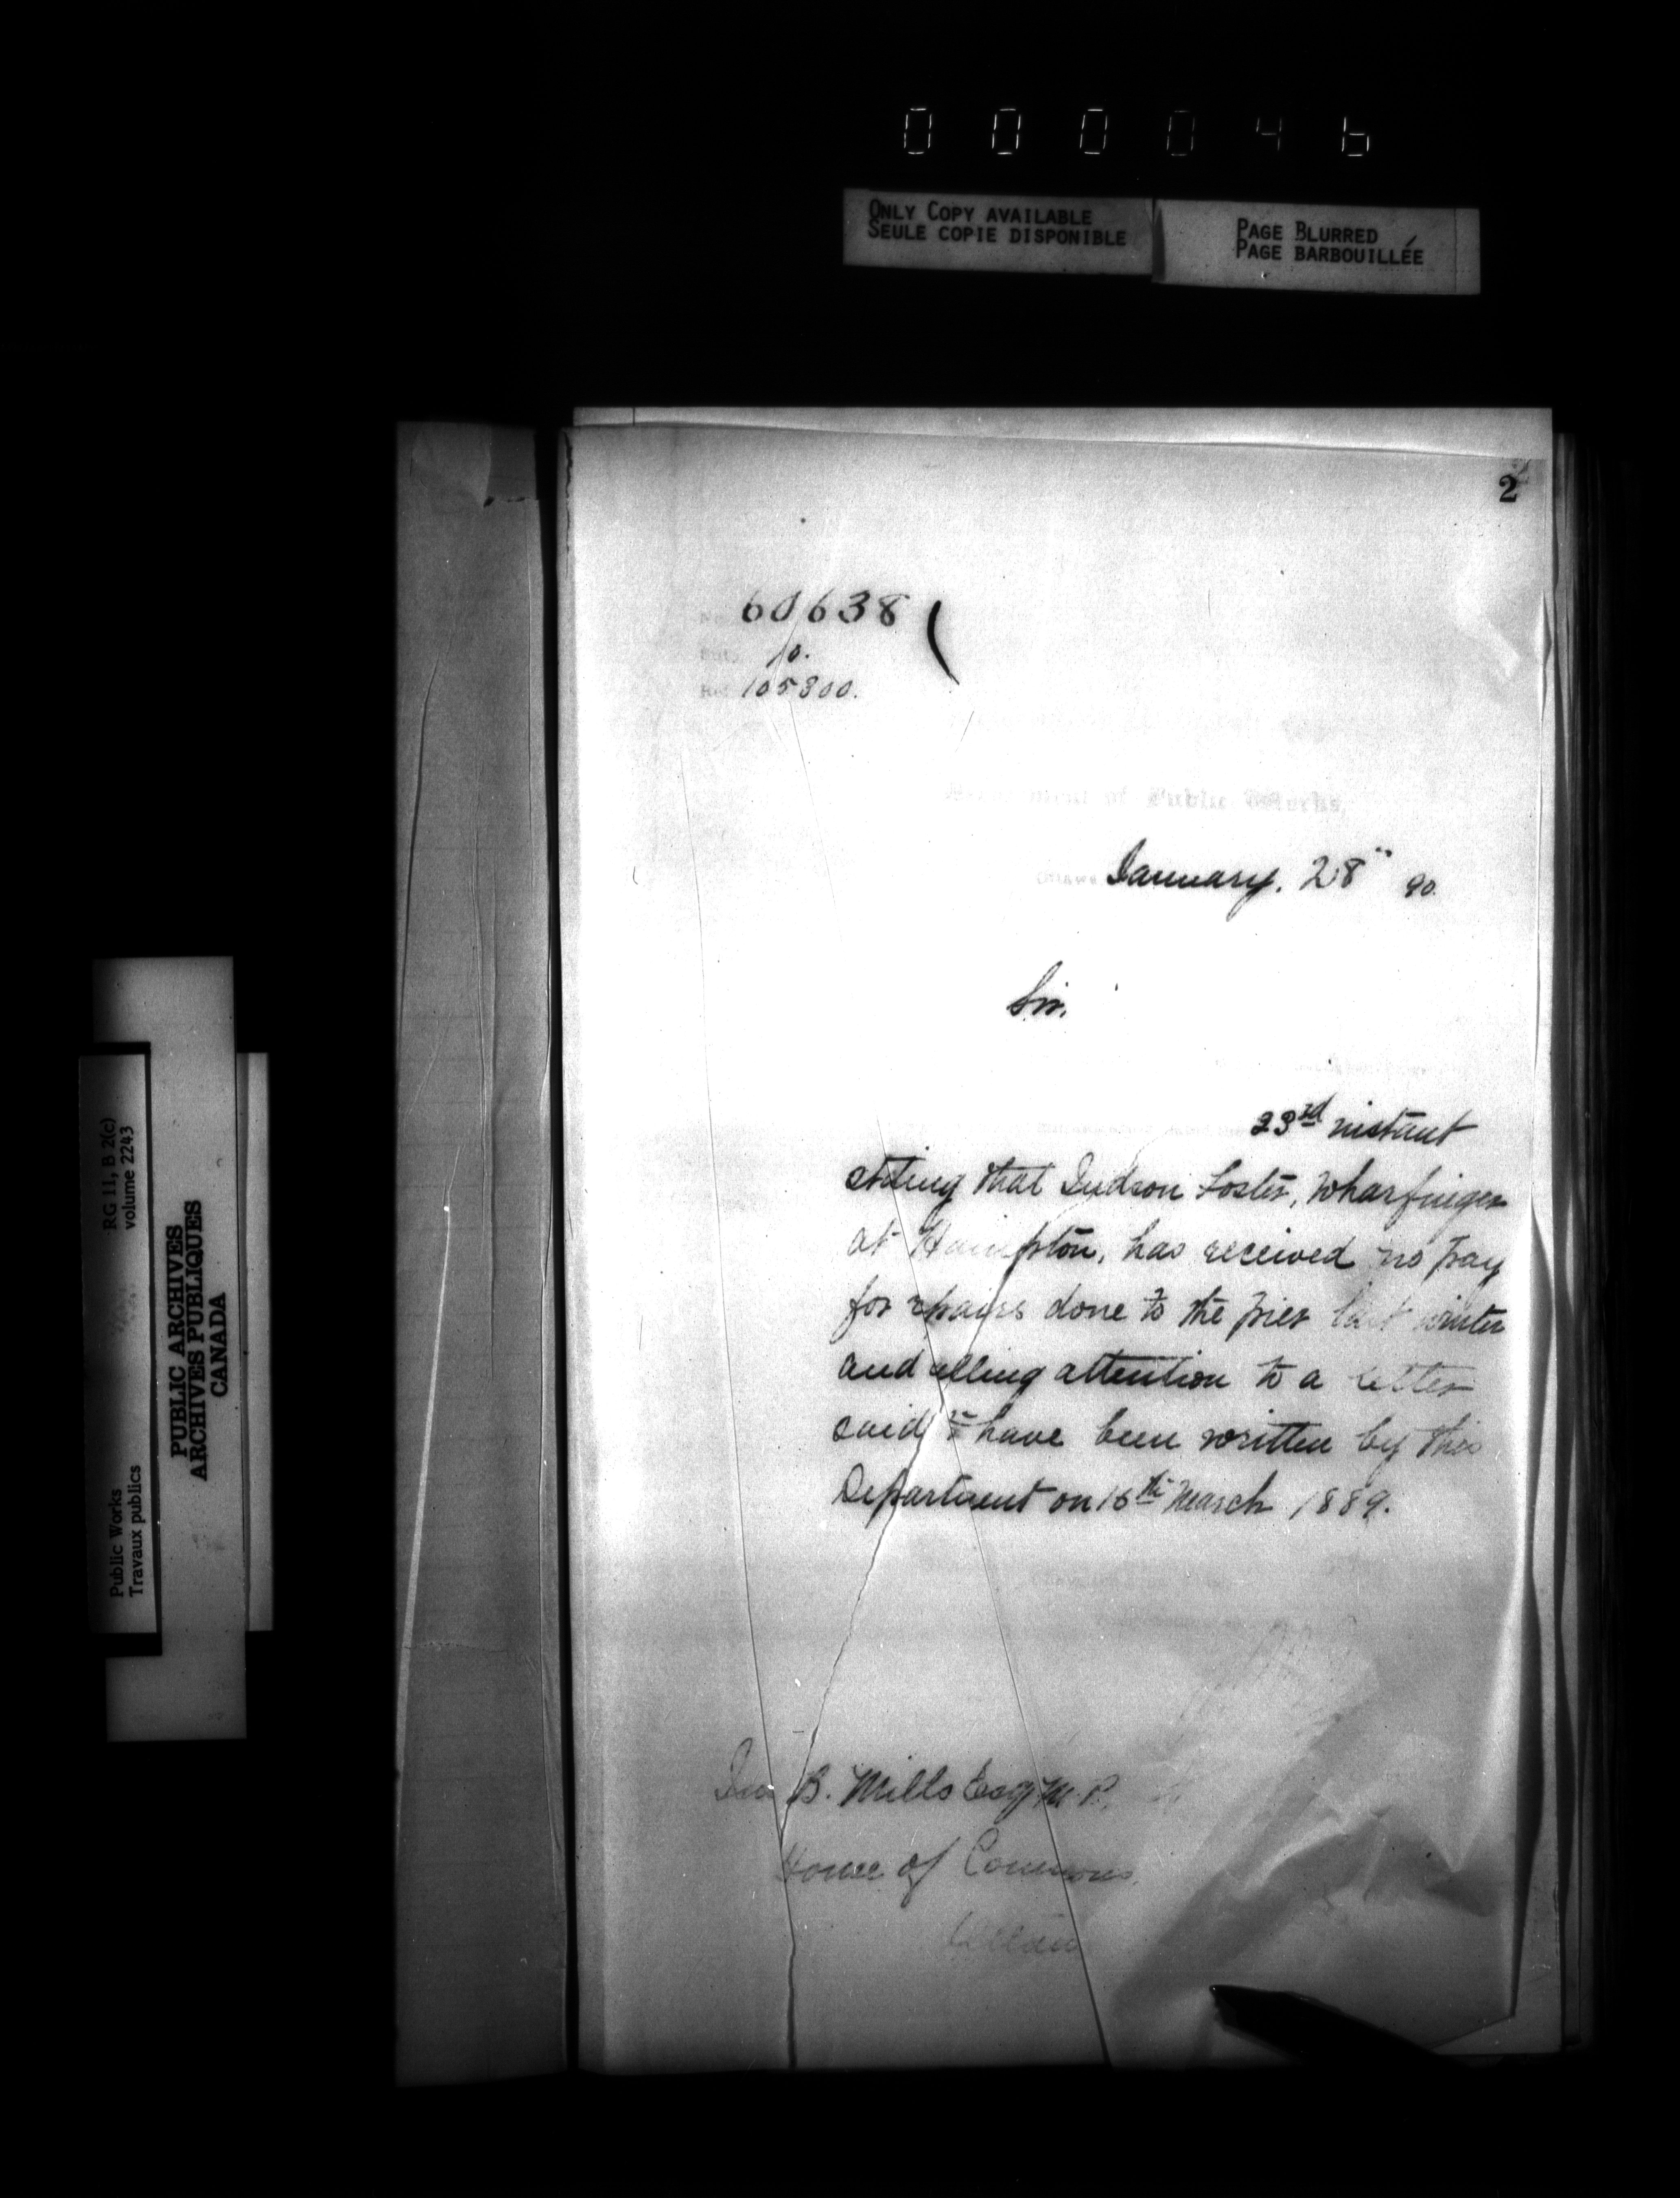 000046
ONLY COPY AVAILABLE
SEULE COPIE DISPONIBLE
PAGE BLURRED
PAGE BARBOUILLÉE
2
60638
10.
105800.
of Public Works,
January. 28" 90.
Sir.
23rd instant
stating that Judson Foster, Wharfinger
at Hampton, has received no pay
for repairs done to the pier last winter
and calling attention to a letter
said to have been written by this
Department on 16th March 1889.
Jno B. Mills Esq M.P.
House of Commons,
Ottawa
RG 11, B 2(c)
volume 2243
PUBLIC ARCHIVES
ARCHIVES PUBLIQUES
CANADA
Public Works
Travaux publics